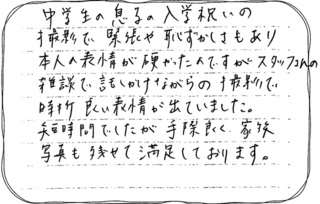 中学生の息子の入学祝いの
撮影で、緊張や恥ずかしさもあり
本人の表情が硬かったのですがスタッフさんの
雑談で話しかけながらの撮影で
時折良い表情が出ていました。
短時間でしたが手際良く、家族
写真も残せて満足しております。